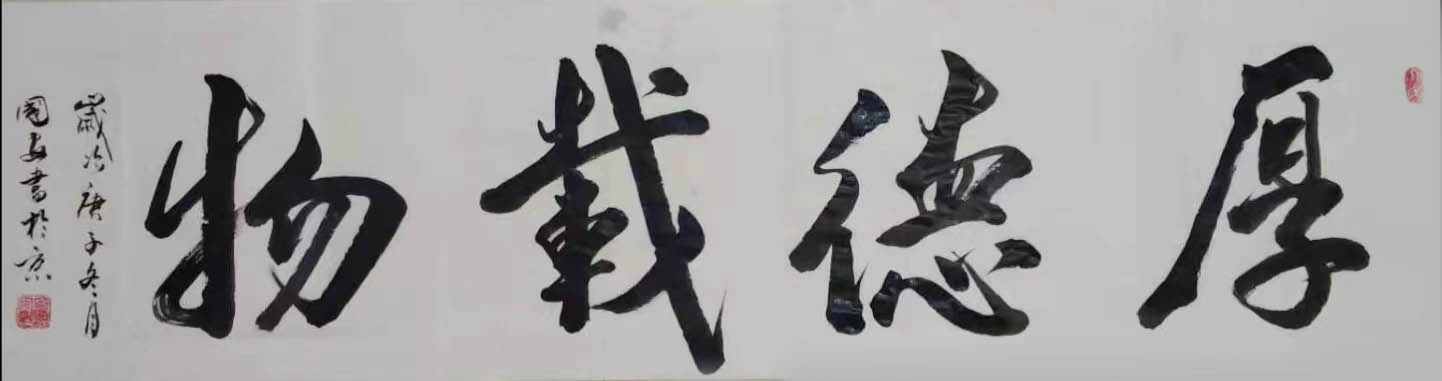 厚德载物
歲次庚子冬月
國安書於京